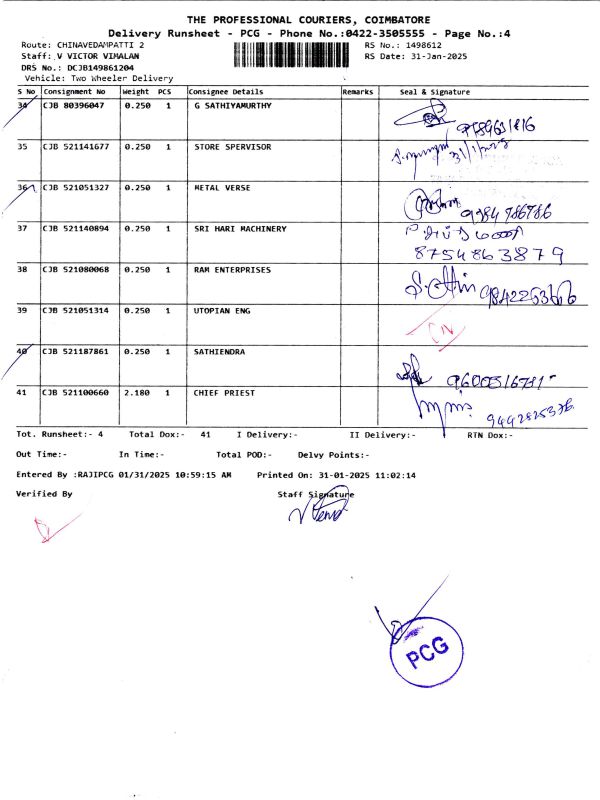 THE PROFESSIONAL COURIERS, COIMBATORE
Delivery Runsheet - PCG - Phone No.:0422-3505555 - Page No.:4
Route: CHINAVEDAMPATTI 2 RS No.: 1498612
Staff: V VICTOR VIMALAN RS Date: 31-Jan-2025
DRS No.: DCJB149861204
Vehicle: Two Wheeler Delivery
S No Consignment No Weight PCS Consignee Details Remarks Seal & Signature
34 CJB 80396047 0.250 1 G SATHIYAMURTHY
35 CJB 521141677 0.250 1 STORE SPERVISOR
36 CJB 521051327 0.250 1 METAL VERSE
9984786786
37 CJB 521140894 0.250 1 SRI HARI MACHINERY
8754863879
38 CJB 521080068 0.250 1 RAM ENTERPRISES
39 CJB 521051314 0.250 1 UTOPIAN ENG
40 CJB 521187861 0.250 1 SATHIENDRA
41 CJB 521100660 2.180 1 CHIEF PRIEST
Tot. Runsheet:- 4 Total Dox:- 41 I Delivery:- II Delivery:- RTN Dox:-
Out Time:- In Time:- Total POD:- Delvy Points:-
Entered By :RAJIPCG 01/31/2025 10:59:15 AM Printed On: 31-01-2025 11:02:14
Verified By Staff Signature
PCG